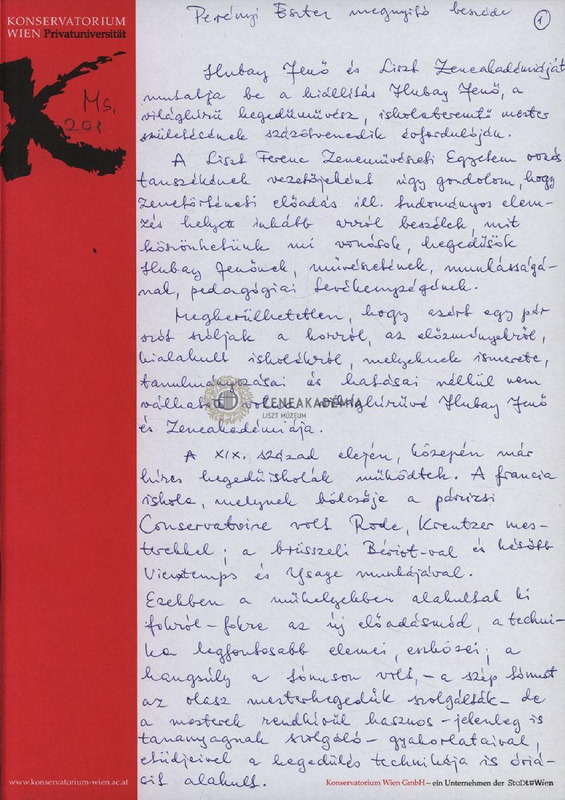 KONSERVATORIUM
WIEN Privatuniversität
Ms.
201
Perényi Eszter megnyitó beszéde
1
Hubay Jenő és Liszt Zeneakadémiáját
mutatja be a kiállítás Hubay Jenő, a
világhírű hegedűművész, iskolateremtő mester
születésének százötvenedik évfordulóján.
A Liszt Ferenc Zeneművészeti Egyetem vonós
tanszékének vezetőjeként úgy gondolom, hogy
zenetörténeti előadás ill. tudományos elem-
zés helyett inkább arról beszélek, mit
köszönhetünk mi vonósok, hegedűsök
Hubay Jenőnek, művészetének, munkásságá-
nak, pedagógiai tevékenységének.
Megkerülhetetlen, hogy azért egy pár
szót szóljak a korról, az előzményekről,
kialakult iskolákról, melyeknek ismerete,
tanulmányozásai és hatásai nélkül nem
válhatott volna világhírűvé Hubay Jenő
és Zeneakadémiája.
ZENEAKADÉMIA
LISZT MÚZEUM
A XIX. század elején, közepén már
híres hegedűiskolák működtek. A francia
iskola, melynek bölcsője a párizsi
Conservatoire volt Rode, Kreutzer mes-
terekkel; a brüsszeli Bériot-val és később
Vieuxtemps és Ysaye munkájával.
Ezekben a műhelyekben alakultak ki
fokról-fokra az új előadásmód, a techni-
ka legfontosabb elemei, eszközei; a
hangsúly a tónuson volt, - a szép tónust
az olasz mesterhegedűk szolgálták - de
a mesterek rendkívül hasznos - jelenleg is
tananyagnak szolgáló - gyakorlataival,
etűdjeivel a hegedülés technikája is óriá-
sit alakult.
www.konservatorium-wien.ac.at
Konservatorium Wien GmbH – ein Unternehmen der StaDtWien